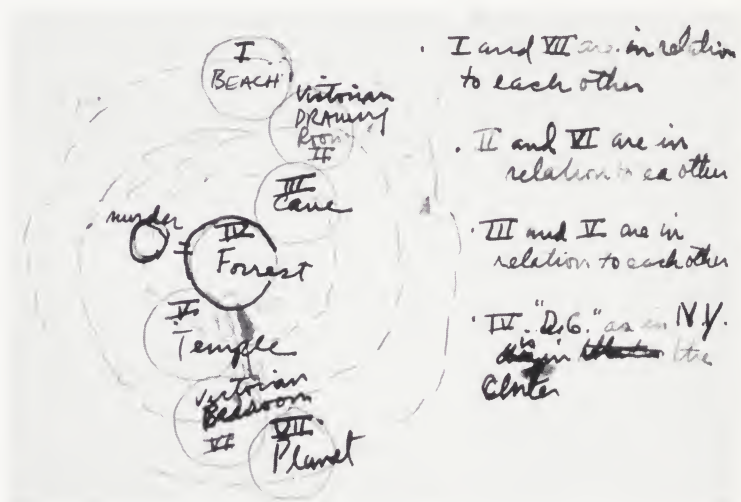 I
BEACH
Victorian
DRAWing
Room
II
III
Cave
murder
IV
Forrest
V
Temple
Victorian
Bedroom
VI
VII
Planet
. I and VII are in relation
to each other
. II and VI are in
relation to ea other
. III and V are in
relation to each other
. IV. "D.G." as in N.Y.
is in the
Center